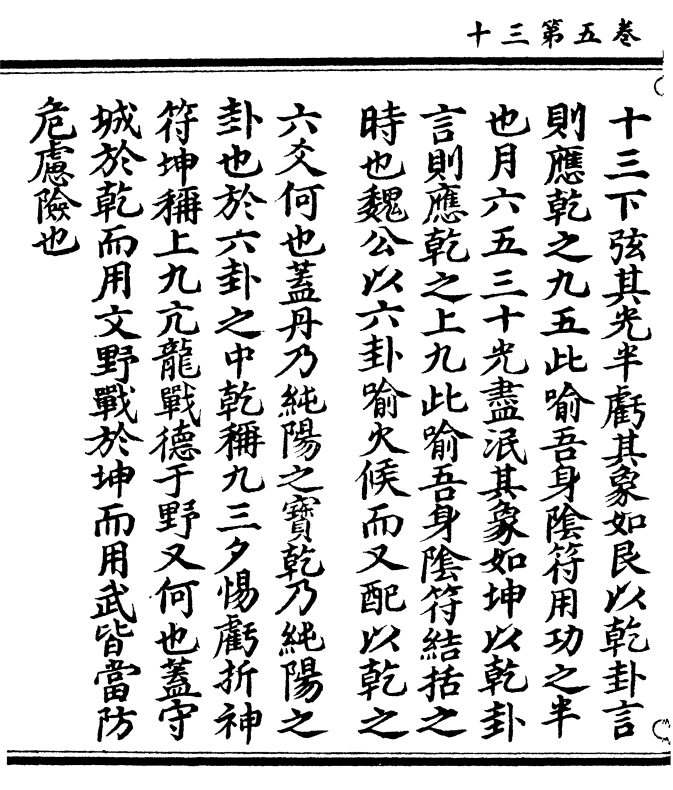 卷五第三十
十三下弦其光半虧其象如艮以乾卦言
則應乾之九五此喻吾身陰符用功之半
也月六五三十光盡泯其象如坤以乾卦
言則應乾之上九此喻吾身陰符結括之
時也魏公以六卦喻火候而又配以乾之
六爻何也蓋丹乃純陽之寶乾乃純陽之
卦也於六卦之中乾稱九三夕惕虧折神
符坤稱上九亢龍戰德于野又何也蓋守
城於乾而用文野戰於坤而用武皆當防
危慮險也